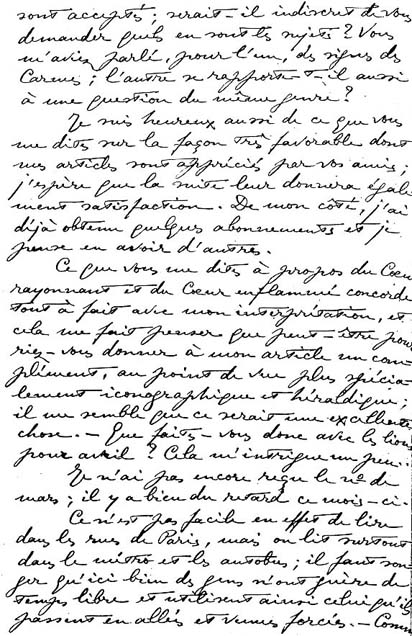 sont acceptés ; serait-il indiscret de vous
demander quels en sont les sujets ? Vous
m'aviez parlé, pour l'un, des signes du
Carmel ; l'autre se rapporte-t-il aussi
à une question du même genre ?
Je suis heureux aussi de ce que vous
me dites sur la façon très favorable dont
mes articles sont appréciés par vos amis ;
j'espère que la suite leur donnera égale-
ment satisfaction. De mon côté, j'ai
déjà obtenu quelques abonnements et je
pense en avoir d'autres.
Ce que vous me dites à propos du Cœur
rayonnant et du Cœur enflammé concorde
tout à fait avec mon interprétation, et
cela me fait penser que peut-être pour-
riez-vous donner à mon article un com-
plément, au point de vue plus spécia-
lement iconographique et héraldique ;
il me semble que ce serait une excellente
chose. – Que faites-vous donc avec les lions
pour avril ? Cela m'intrigue un peu..
Je n'ai pas encore reçu le nº de
mars ; il y a bien du retard ce mois-ci.
Ce n'est pas facile en effet de lire
dans les rues de Paris, mais on lit surtout
dans le métro et les autobus ; il faut son-
ger qu'ici bien des gens n'ont guère de
temps libre et utilisent ainsi celui qu'ils
passent en allées et venues forcées. – Comme